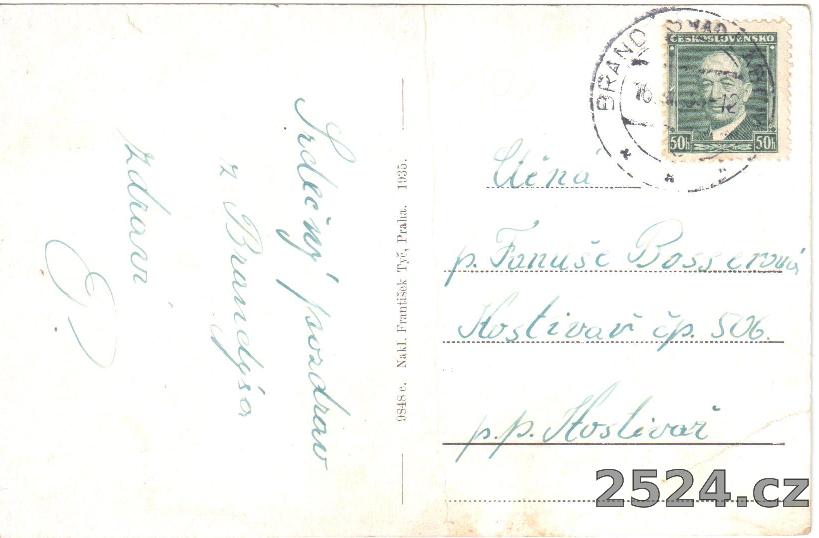 Srdečný pozdrav
z Brandýsa
zdraví
E.
9848 c. Nakl. František Tyč, Praha. 1935.
BRAND
ČESKOSLOVENSKO
50h 50h
Ctěná
p. Fanuše Bosserová
Hostivař čp. 506.
p.p. Hostivař
2524.cz